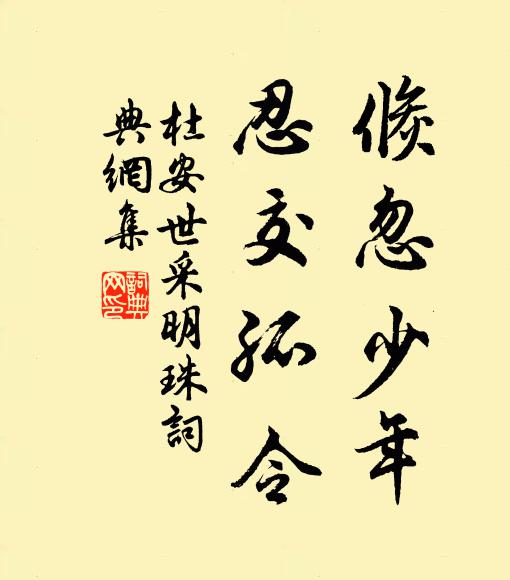 倏忽少年
忍交孤令
杜安世采明珠詞
典網集
詞典網印